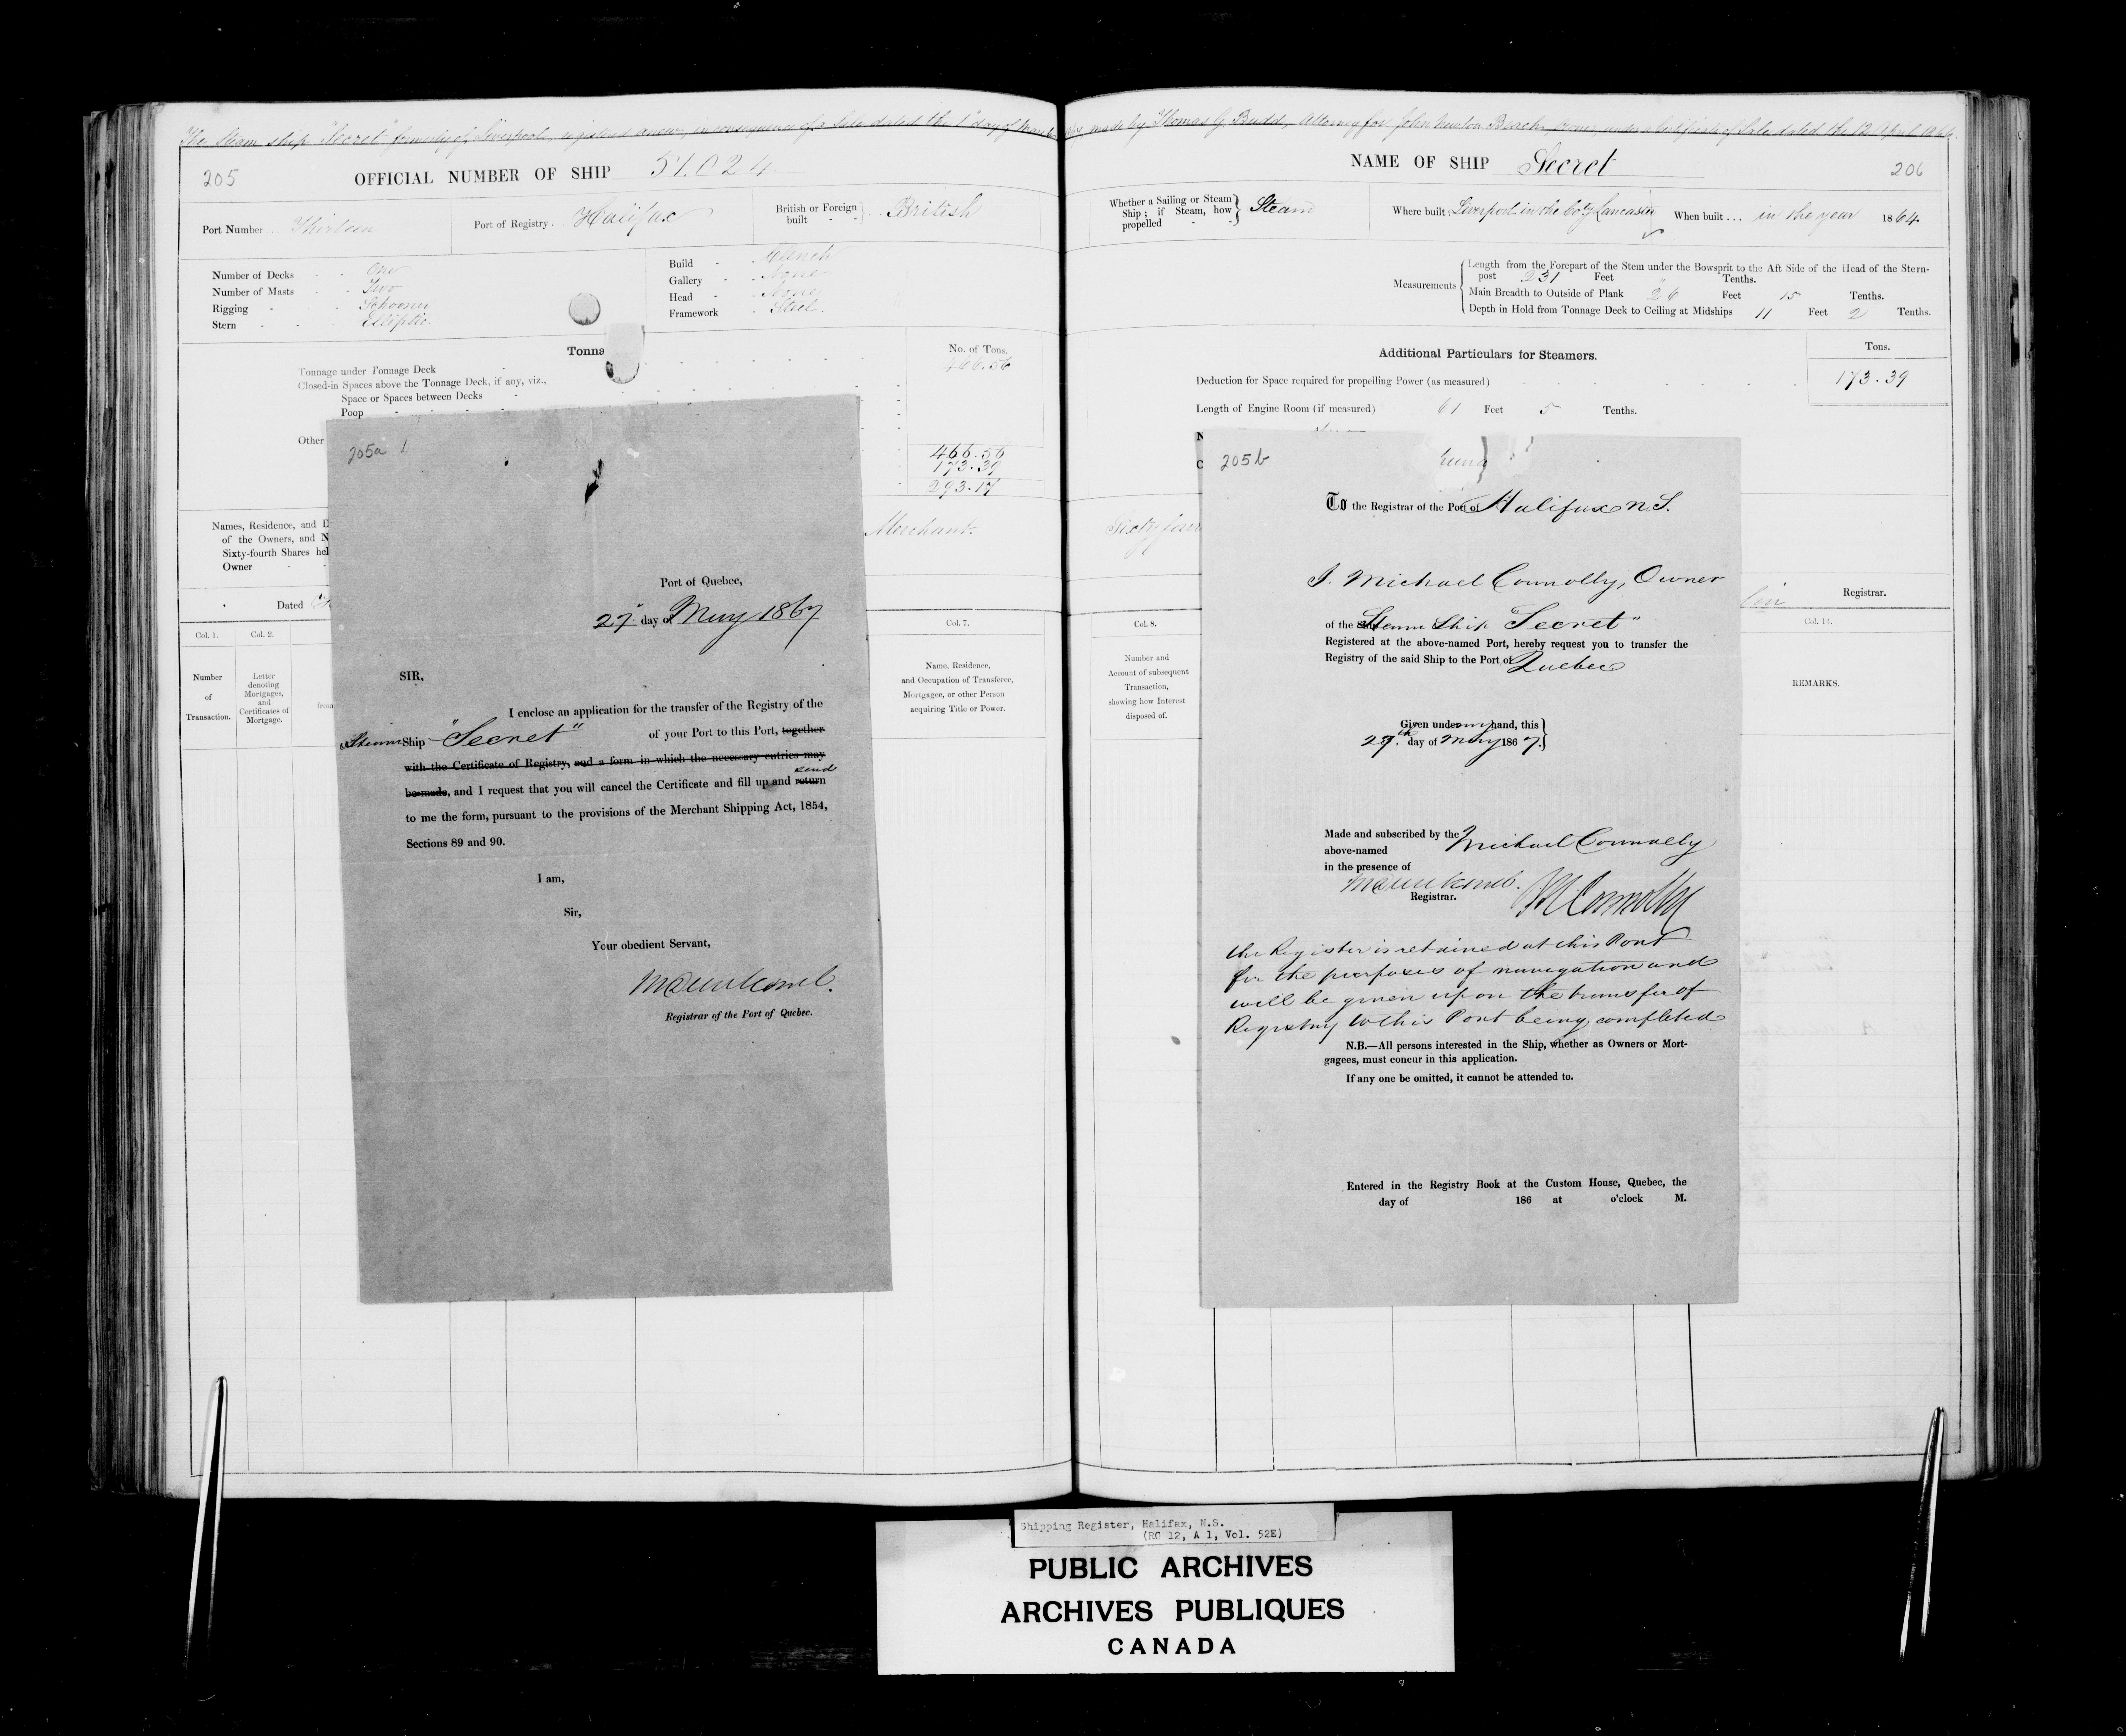 The Steam ship "Secret" formerly of Liverpool, registered anew, in consequence of a Sale dated the 1st day of made by Thomas G. Budd, Attorney for John Newton Beach, Owner, under a Certificate of Sale dated the 12 April 1866.
205
OFFICIAL NUMBER OF SHIP 51.024
Port Number Thirteen
Port of Registry Halifax
British or Foreign built British
Number of Decks One
Number of Masts Two
Rigging Schooner
Stern Elliptic
Build Clench
Gallery None
Head None
Framework Steel.
Tonna
No. of Tons.
Tonnage under Tonnage Deck 466.56
Closed-in Spaces above the Tonnage Deck, if any, viz.,
Space or Spaces between Decks
Poop
Other
466.56
173.39
293.17
Names, Residence, and D
of the Owners, and N
Sixty-fourth Shares hel
Owner
Merchant.
Dated
Col. 1.
Col. 2.
Col. 7.
Number
of
Transaction.
Letter
denoting
Mortgages,
and
Certificates of
Mortgage.
from
Name, Residence,
and Occupation of Transferee,
Mortgagee, or other Person
acquiring Title or Power.
205a 1
Port of Quebec,
27th day of May 1867
SIR,
I enclose an application for the transfer of the Registry of the
Steam Ship "Secret" of your Port to this Port, together
with the Certificate of Registry, and a form in which the necessary entries may
send
be made, and I request that you will cancel the Certificate and fill up and return
to me the form, pursuant to the provisions of the Merchant Shipping Act, 1854,
Sections 89 and 90.
I am,
Sir,
Your obedient Servant,
Registrar of the Port of Quebec.
NAME OF SHIP Secret
206
Whether a Sailing or Steam
Ship; if Steam, how
propelled
Steam
Where built Liverpool in the Coty Lancaster
When built ... in the year 1864.
Measurements
Length from the Forepart of the Stem under the Bowsprit to the Aft Side of the Head of the Stern-
post 231 Feet Tenths.
Main Breadth to Outside of Plank 26 Feet 15 Tenths.
Depth in Hold from Tonnage Deck to Ceiling at Midships 11 Feet 2 Tenths.
Additional Particulars for Steamers.
Tons.
Deduction for Space required for propelling Power (as measured) 173.39
Length of Engine Room (if measured) 61 Feet 5 Tenths.
N
C
Sixty four
Registrar.
Col. 8.
Col. 14.
Number and
Account of subsequent
Transaction,
showing how Interest
disposed of.
REMARKS.
205b
To the Registrar of the Port of Halifax N.S.
I. Michael Connolly, Owner
of the Ship Steam Ship "Secret"
Registered at the above-named Port, hereby request you to transfer the
Registry of the said Ship to the Port of Quebec
Given under my hand, this
27th day of May 1867.
Made and subscribed by the
above-named Michael Connolly
in the presence of
Registrar.
M Connolly
the Register is retained at this Port
for the purposes of navigation and
will be given up on the transfer of
Registry to this Port being completed
N.B.—All persons interested in the Ship, whether as Owners or Mort-
gagees, must concur in this application.
If any one be omitted, it cannot be attended to.
Entered in the Registry Book at the Custom House, Quebec, the
day of 186 at o'clock M.
Shipping Register, Halifax, N.S.
(RG 12, A 1, Vol. 52E)
PUBLIC ARCHIVES
ARCHIVES PUBLIQUES
CANADA